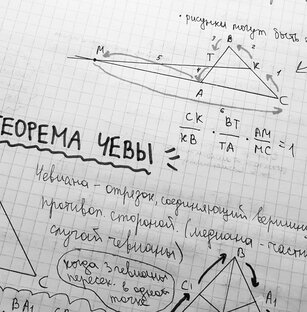 • рисунки могут быть
B
3 2
M 5 T K 1
4
A
6 C
CK/KB · BT/TA · AM/MC = 1
ТЕОРЕМА ЧЕВЫ
Чевиана - отрезок, соединяющий вершину
противоп. стороной. (медиана - частн
случай чевианы)
когда 3 чевианы
пересек. в одной
точке
C
BA₁
B
C₁
A₁